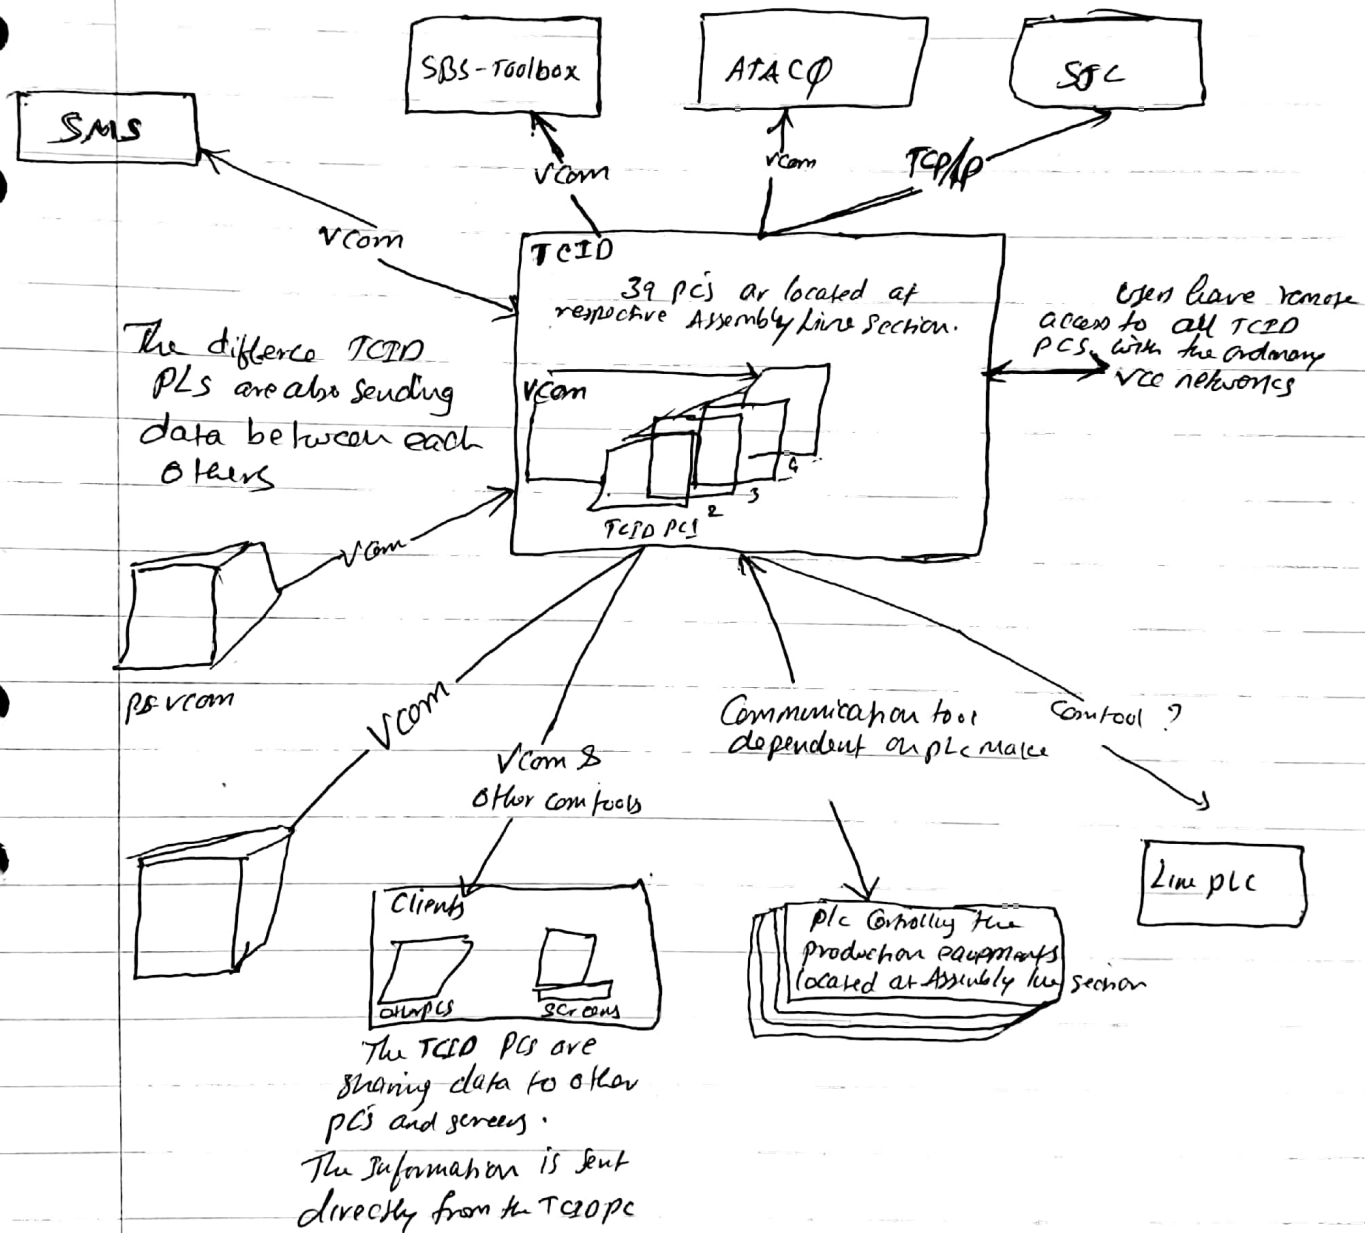 SBS-Toolbox
ATACQ
STC
SMS
Vcom
Vcom
TCP/IP
Vcom
TCID
39 pc's ar located at
respective Assembly Line section.
Users have remote
access to all TCID
PCS, with the ordinary
vcc networks
The differece TCID
PLS are also sending
data between each
others
Vcom
4
3
2
TCID PCS
Vcom
PS vcom
Vcom
Vcom &
other comtools
Communication tool
dependent on plc make
Comtool ?
Clients
other PCS
screens
Line plc
Plc Controlling the
production equipments
located at Assembly line section
The TCID PCs are
sharing data to other
pc's and screens.
The Information is sent
directly from the TCID PC